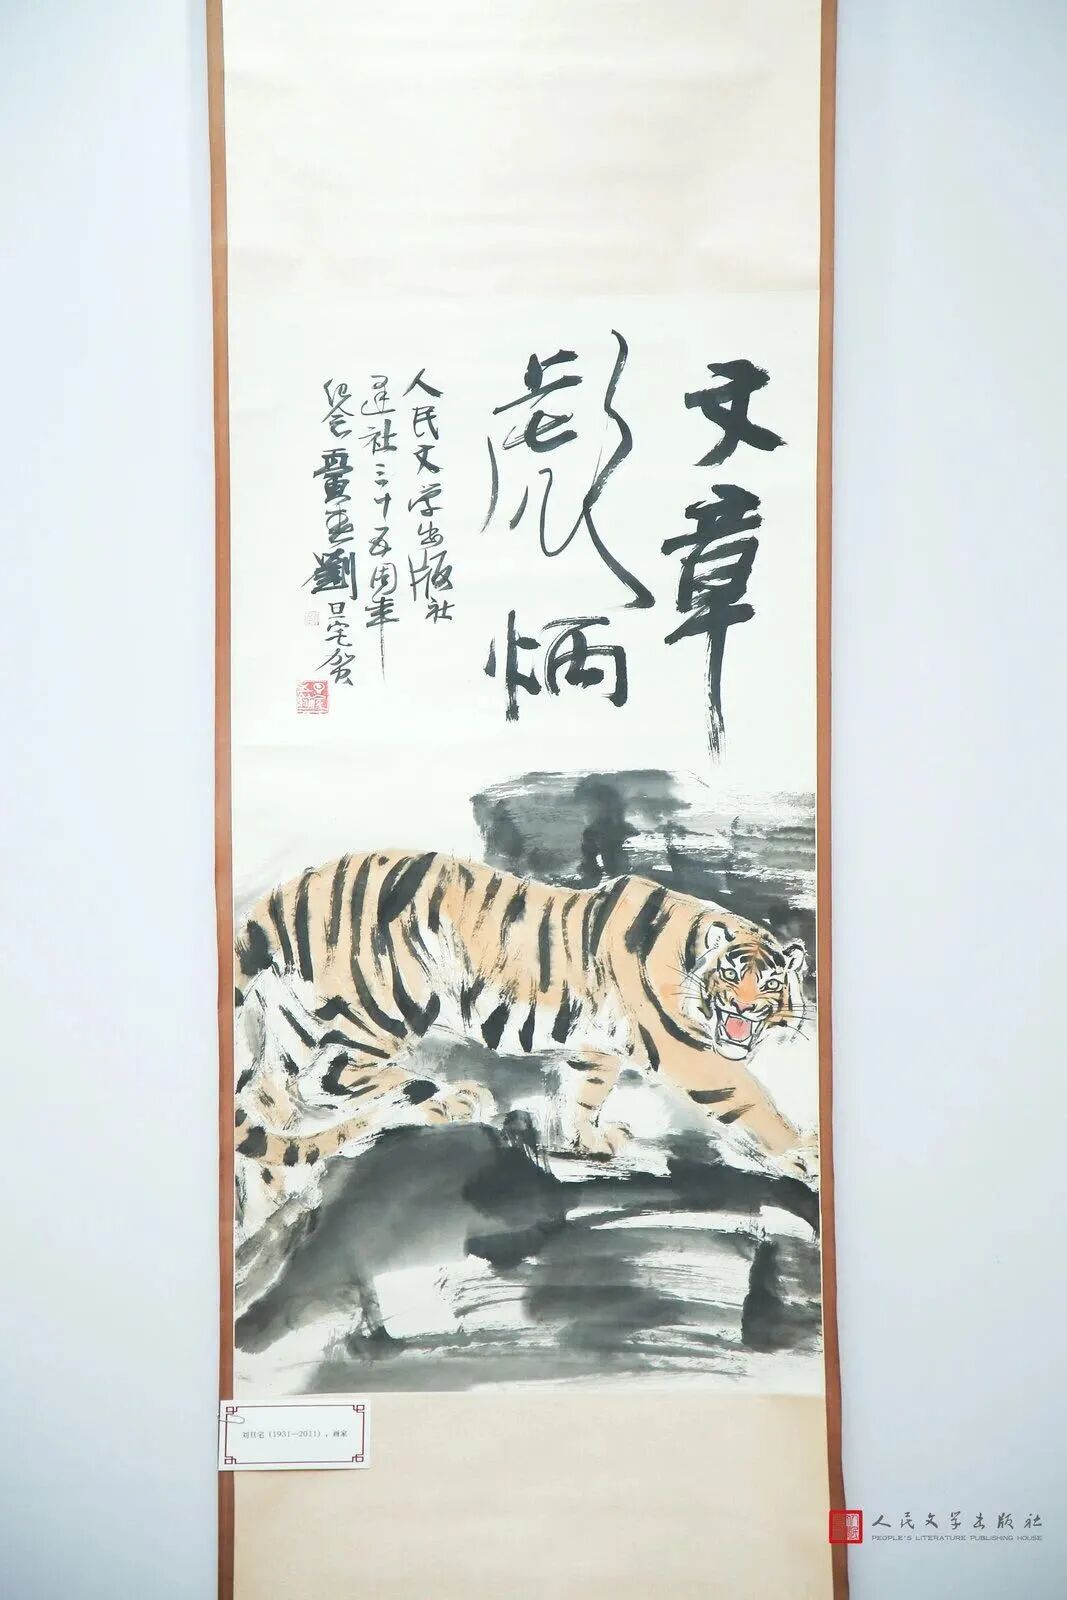 文章
彪炳
人民文学出版社
建社三十五周年
纪念 劉旦宅贺
刘旦宅（1931—2011），画家
人民文学出版社
PEOPLE'S LITERATURE PUBLISHING HOUSE